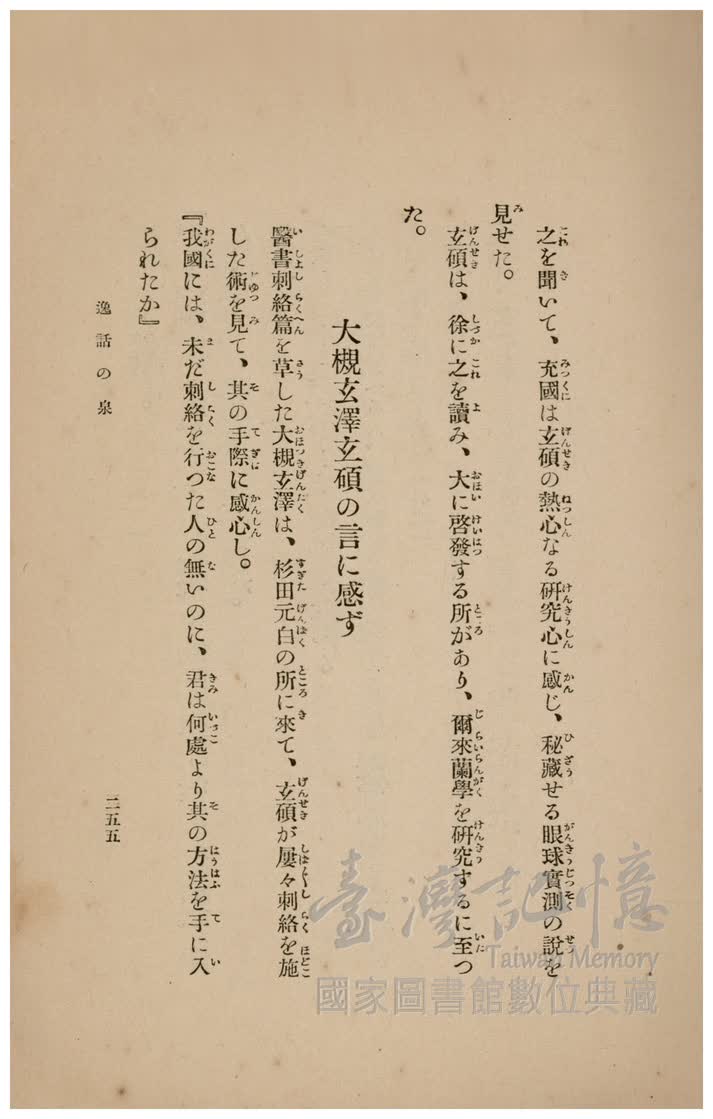 之を聞いて、充國は玄碩の熱心なる研究心に感じ、秘藏せる眼球實測の說を
見せた。
玄碩は、徐に之を讀み、大に啓發する所があり、爾來蘭學を研究するに至つ
た。
大槻玄澤玄碩の言に感ず
醫書刺絡篇を草した大槻玄澤は、杉田元白の所に來て、玄碩が屢々刺絡を施
した術を見て、其の手際に感心し。
『我國には、未だ刺絡を行つた人の無いのに、君は何處より其の方法を手に入
られたか』
逸話の泉
二五五
臺灣記憶
Taiwan Memory
國家圖書館數位典藏